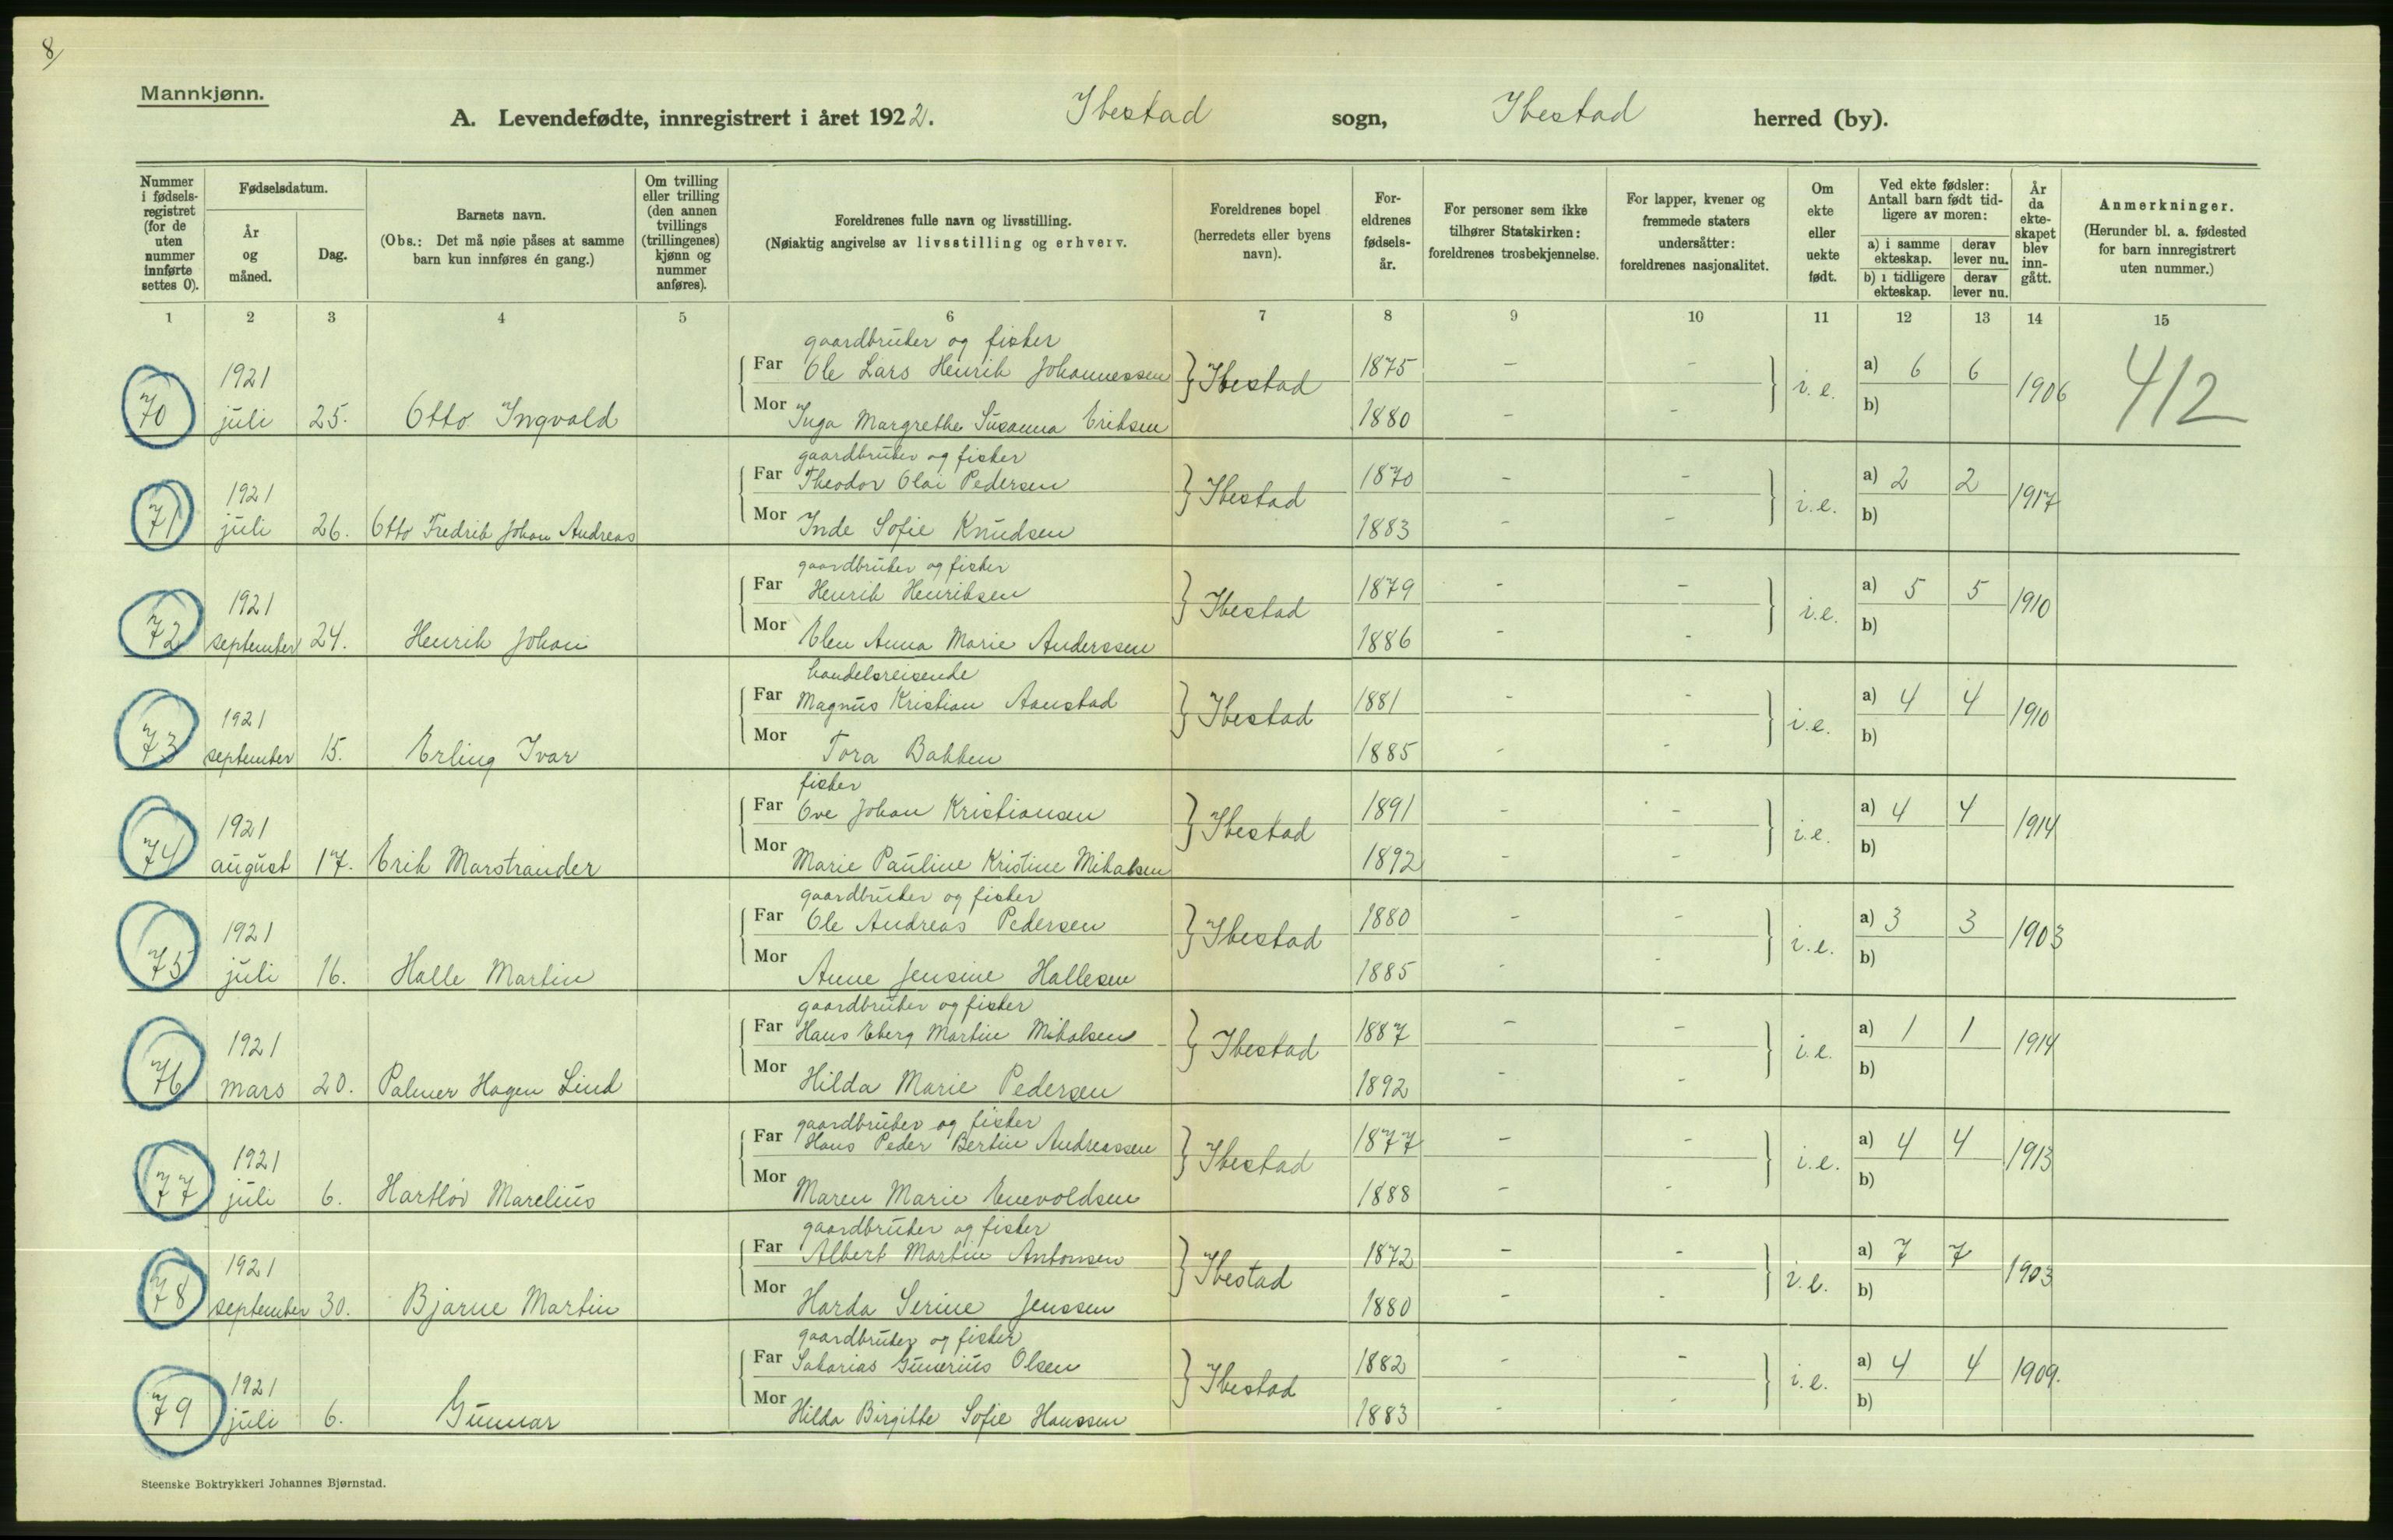 8
Mannkjønn.
A. Levendefødte, innregistrert i året 1922. Ibestad sogn, Ibestad herred (by).
Nummer i fødselsregistret (for de uten nummer innførte settes 0).
Fødselsdatum.
År og måned.
Dag.
Barnets navn.
(Obs.: Det må nøie påses at samme barn kun innføres én gang.)
Om tvilling eller trilling (den annen tvillings (trillingenes) kjønn og nummer anføres).
Foreldrenes fulle navn og livsstilling.
(Nøiaktig angivelse av livsstilling og erhverv.
Foreldrenes bopel (herredets eller byens navn).
Foreldrenes fødselsår.
For personer som ikke tilhører Statskirken: foreldrenes trosbekjennelse.
For lapper, kvener og fremmede staters undersåtter: foreldrenes nasjonalitet.
Om ekte eller uekte født.
Ved ekte fødsler: Antall barn født tidligere av moren:
a) i samme ekteskap.
derav lever nu.
b) i tidligere ekteskap.
derav lever nu.
År da ekteskapet blev inngått.
Anmerkninger.
(Herunder bl. a. fødested for barn innregistrert uten nummer.)
1 2 3 4 5 6 7 8 9 10 11 12 13 14 15
gaardbruker og fisker
70 1921 juli 25. Otto Ingvald
Far Ole Lars Henrik Johannessen Ibestad 1875 - - i.e. a) 6 6 1906 412
Mor Inga Margrethe Susanna Eriksen 1880 - - b)
gaardbruker og fisker
71 1921 juli 26. Otto Fredrik Johan Andreas
Far Theodor Olai Pedersen Ibestad 1870 - - i.e. a) 2 2 1917
Mor Inde Sofie Knudsen 1883 - - b)
gaardbruker og fisker
72 1921 september 24. Henrik Johan
Far Henrik Henriksen Ibestad 1879 - - i.e. a) 5 5 1910
Mor Elen Anna Marie Anderssen 1886 - - b)
handelsreisende
73 1921 september 15. Erling Ivar
Far Magnus Kristian Aanstad Ibestad 1881 - - i.e. a) 4 4 1910
Mor Tora Bakken 1885 - - b)
fisker
74 1921 august 17. Erik Marstrander
Far Ove Johan Kristiansen Ibestad 1891 - - i.e. a) 4 4 1914
Mor Marie Pauline Kristine Mikalsen 1892 - - b)
gaardbruker og fisker
75 1921 juli 16. Halle Martin
Far Ole Andreas Pedersen Ibestad 1880 - - i.e. a) 3 3 1903
Mor Anne Jensine Hallesen 1885 - - b)
gaardbruker og fisker
76 1921 mars 20. Palmer Hagen Lind
Far Hans Eberg Martin Mikalsen Ibestad 1887 - - i.e. a) 1 1 1914
Mor Hilda Marie Pedersen 1892 - - b)
gaardbruker og fisker
77 1921 juli 6. Hartløv Marelius
Far Hans Peder Bertin Andreassen Ibestad 1877 - - i.e. a) 4 4 1913
Mor Maren Marie Enevoldsen 1888 - - b)
gaardbruker og fisker
78 1921 september 30. Bjarne Martin
Far Albert Martin Antonsen Ibestad 1872 - - i.e. a) 7 7 1903
Mor Harda Serine Jenssen 1880 - - b)
gaardbruker og fisker
79 1921 juli 6. Gunnar
Far Sakarias Gunerius Olsen Ibestad 1882 - - i.e. a) 4 4 1909.
Mor Hilda Birgitte Sofie Hanssen 1883 - - b)
Steenske Boktrykkeri Johannes Bjørnstad.